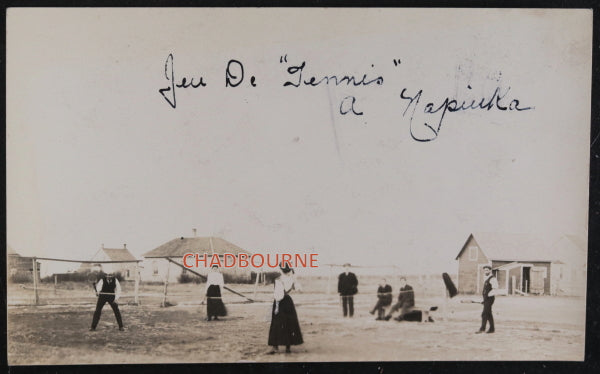 Jeu De "Tennis"
A Napinka
CHADBOURNE